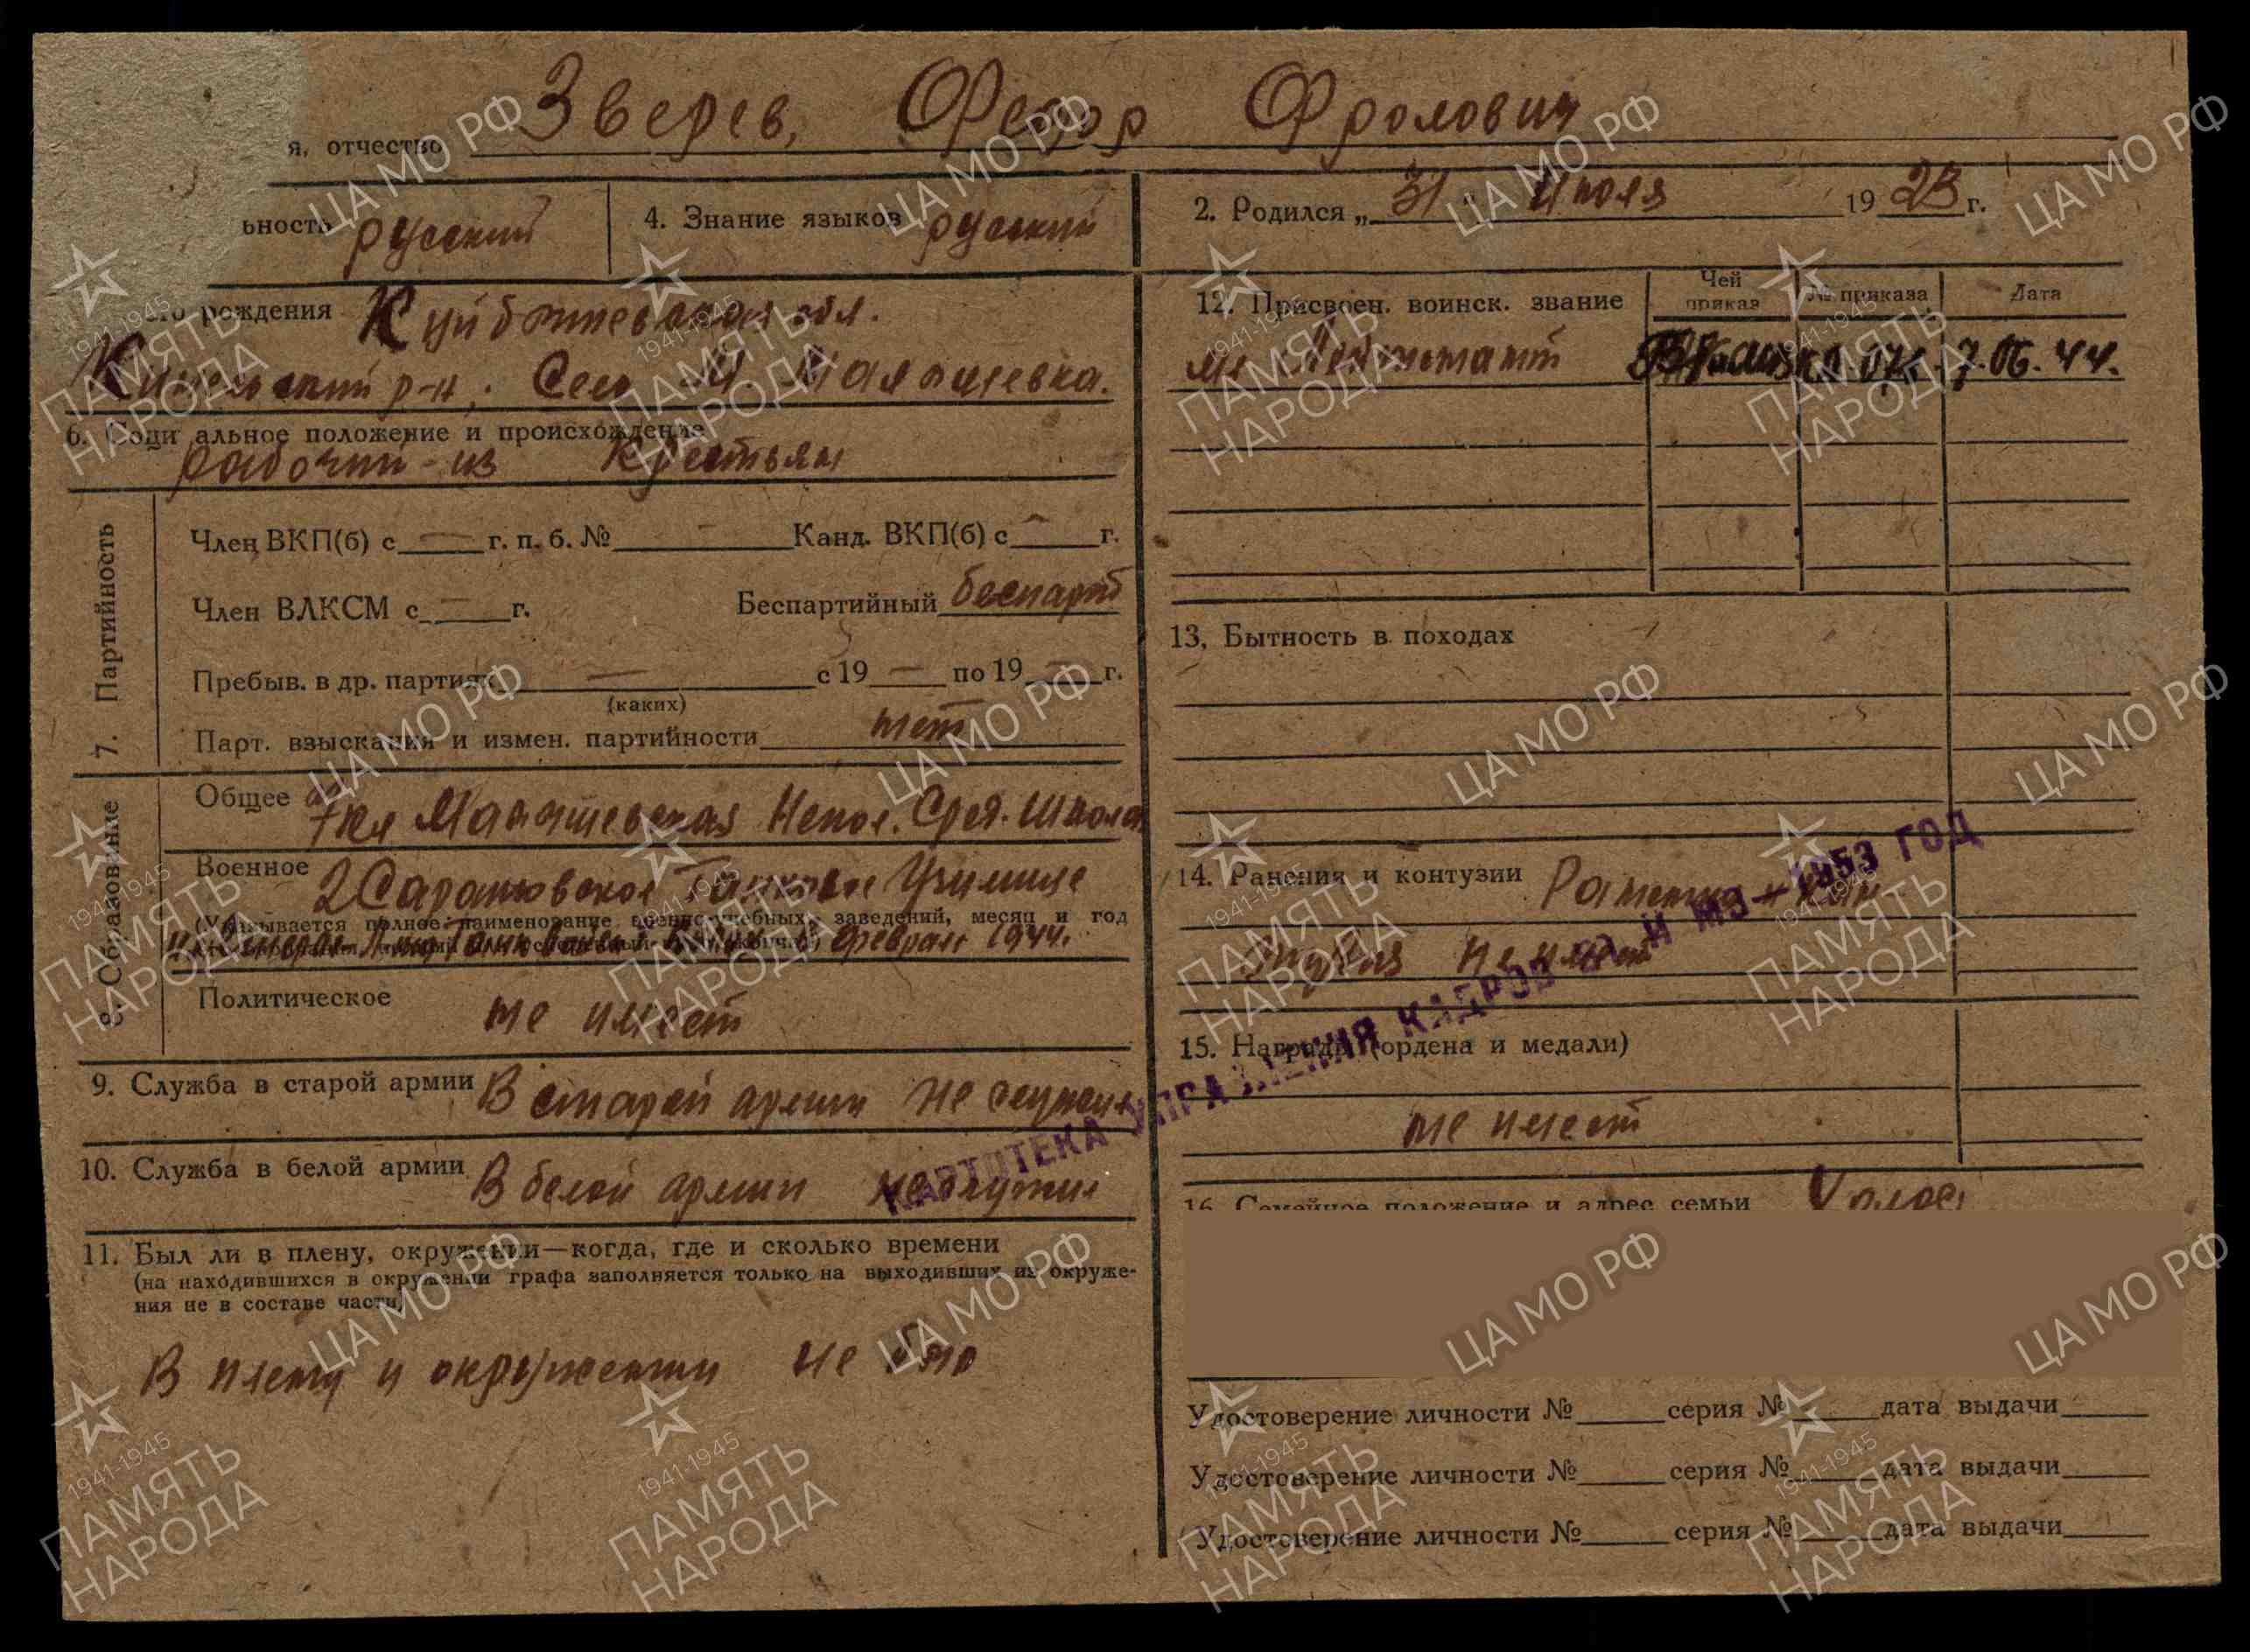 я, отчество Зверев, Федор Фролович
ьность русский 4. Знание языков русский
2. Родился „31" Июля 1923 г.
его рождения Куйбышевская обл.
Кинельский р-н, Село М Малышевка.
6. Социальное положение и происхождение
рабочий - из Крестьян
7. Партийность
Член ВКП(б) с — г. п. б. № — Канд. ВКП(б) с — г.
Член ВЛКСМ с — г. Беспартийный беспарт
Пребыв. в др. партиях — с 19 — по 19 — г.
(каких)
Парт. взыскания и измен. партийности нет
8. Образование
Общее 7 кл Малышевская Непол. Сред. Школа
Военное 2 Саратовское Танковое Училище
(Указывается полное наименование военно-учебных заведений, месяц и год
февраль 1944.
Политическое не имеет
9. Служба в старой армии В старой армии не служил
10. Служба в белой армии В белой армии не служил
11. Был ли в плену, окружении—когда, где и сколько времени
(на находившихся в окружении графа заполняется только на выходивших из окруже-
ния не в составе части)
В плену и окружении не был
12. Присвоен. воинск. звание Чей приказ № приказа Дата
мл Лейтенант 7.06.44.
13, Бытность в походах
14. Ранения и контузии
не имеет
15. Награды (ордена и медали)
не имеет
16. Семейное положение и адрес семьи Холост
Удостоверение личности № серия № дата выдачи
Удостоверение личности № серия № дата выдачи
Удостоверение личности № серия № дата выдачи
КАРТОТЕКА УПРАВЛЕНИЯ КАДРОВ 1953 ГОД
ЦА МО РФ
1941-1945
ПАМЯТЬ
НАРОДА